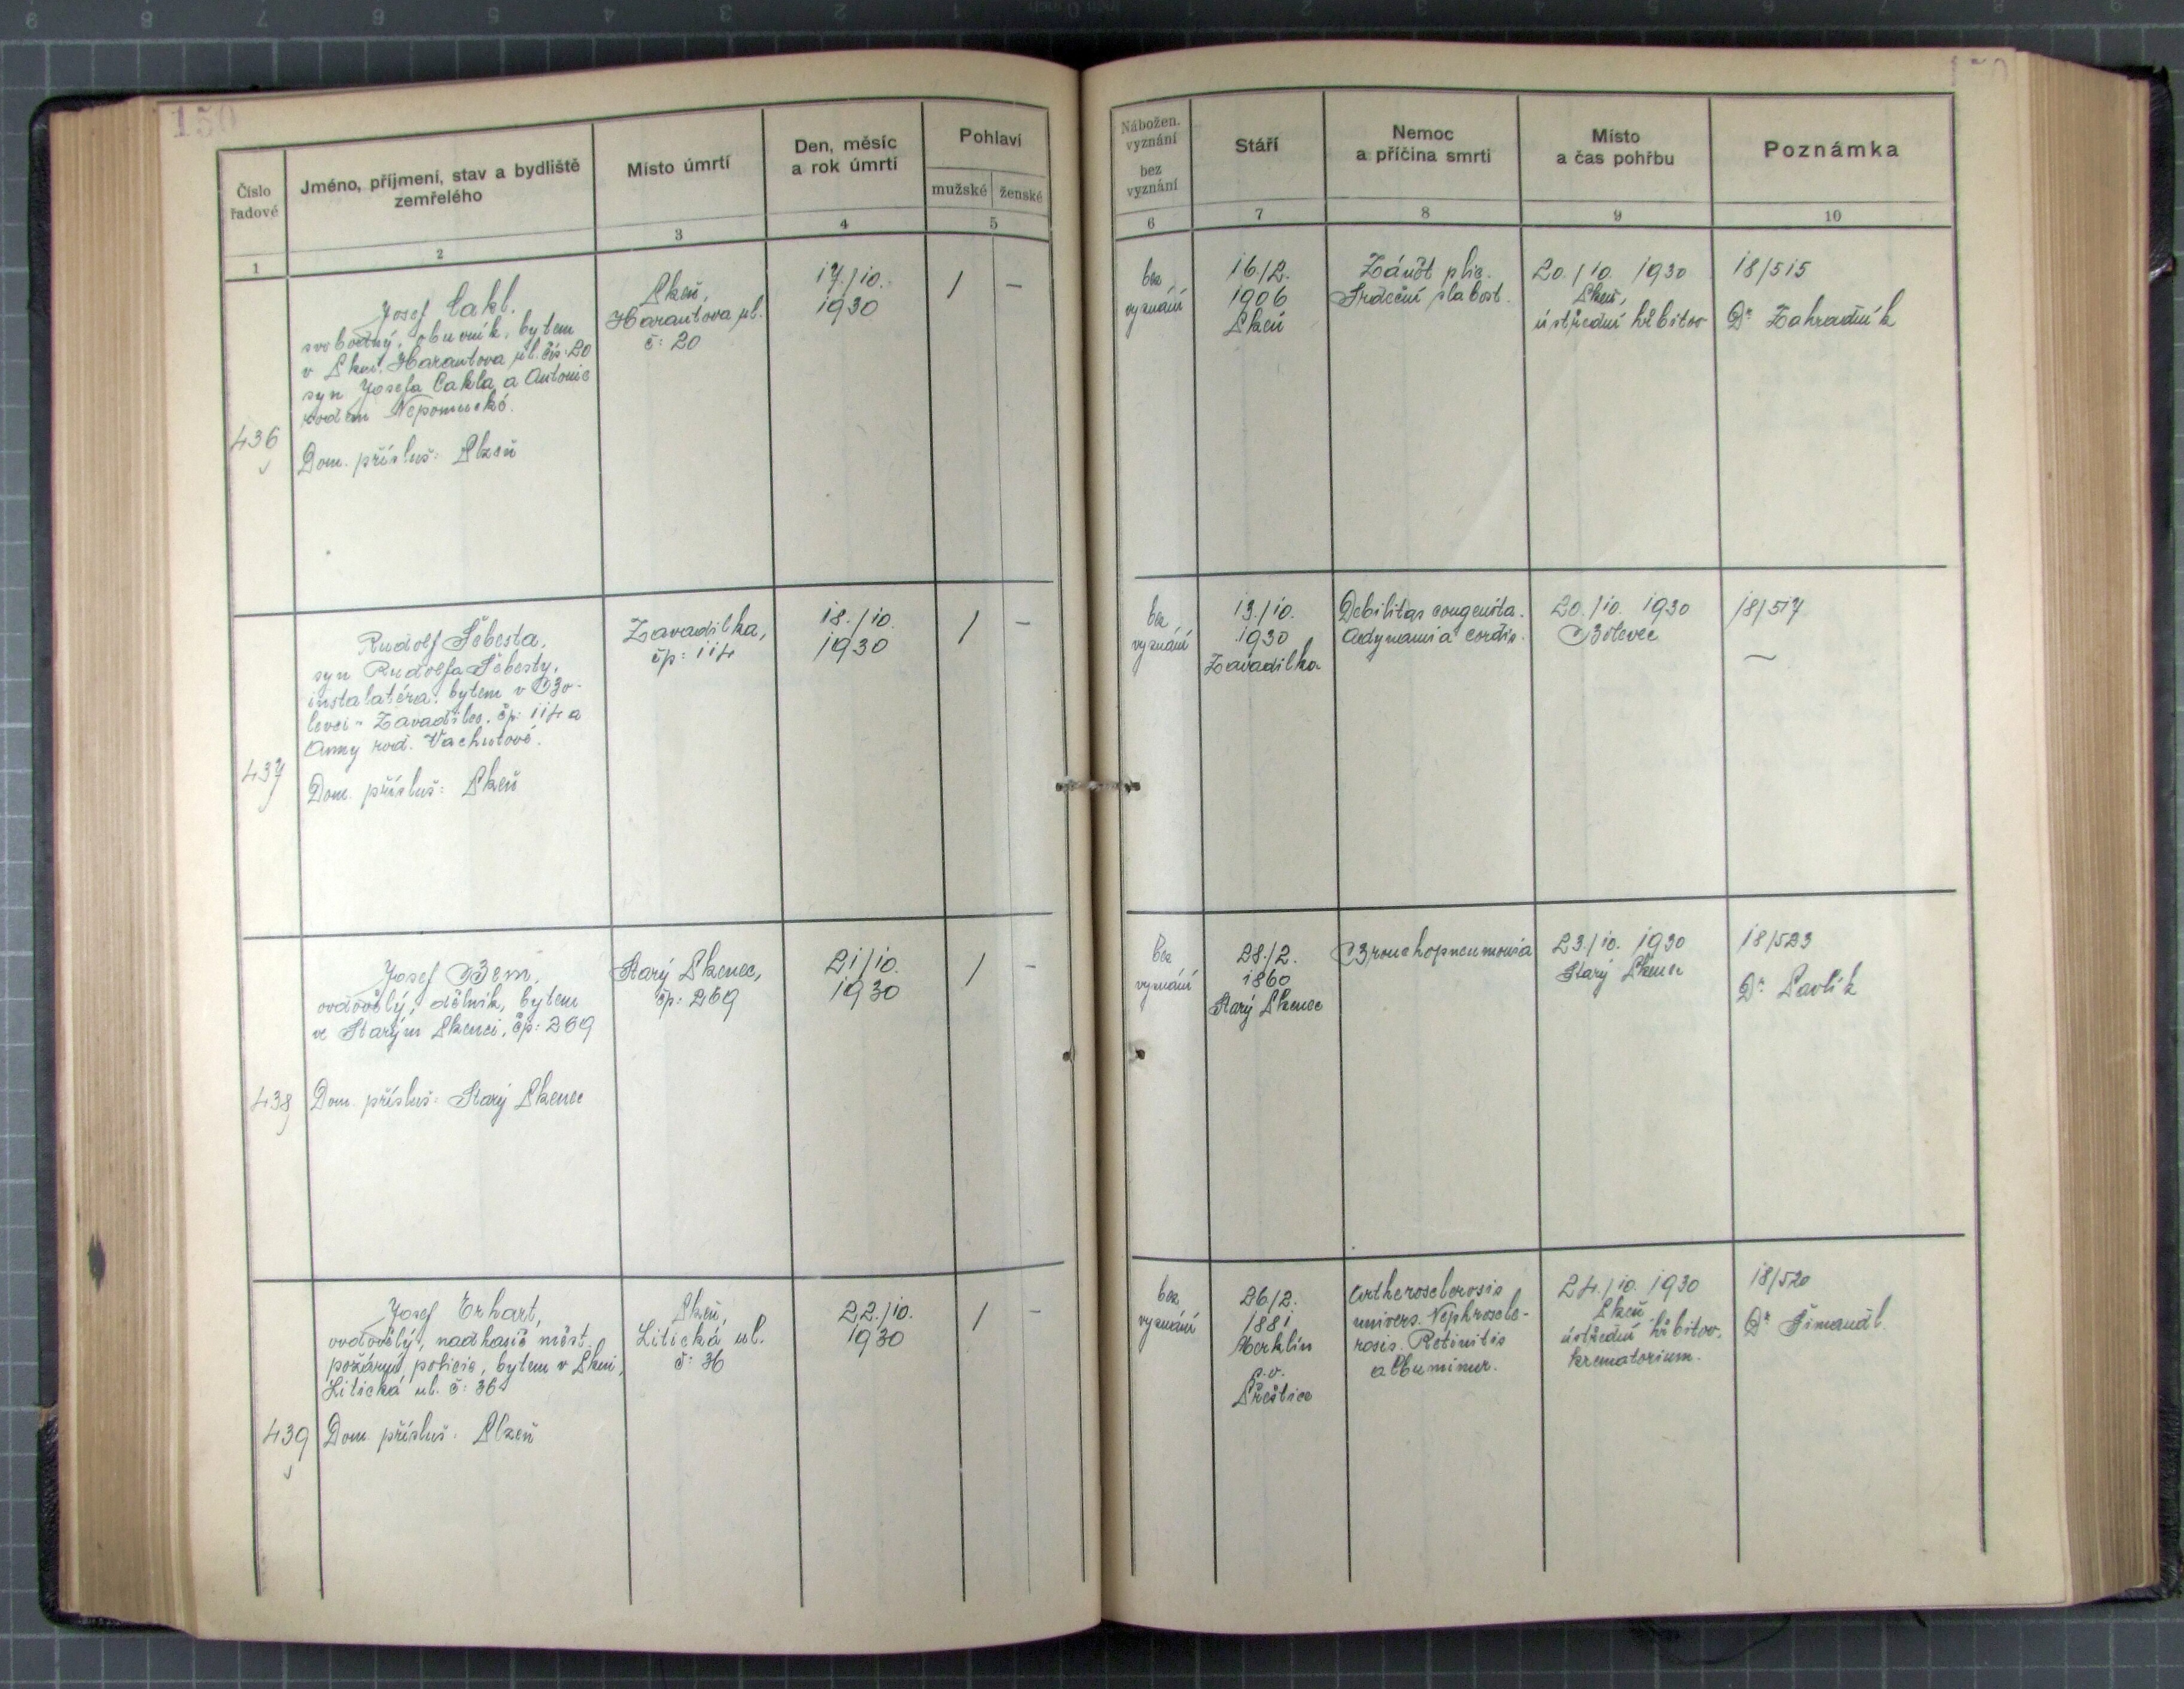 150
150
Číslo řadové
Jméno, příjmení, stav a bydliště zemřelého
Místo úmrtí
Den, měsíc a rok úmrtí
Pohlaví
mužské
ženské
Nábožen. vyznání
bez vyznání
Stáří
Nemoc a příčina smrti
Místo a čas pohřbu
Poznámka
1
2
3
4
5
6
7
8
9
10
436
Josef Cakl.
svobodný, obuvník, bytem
v Plzni, Harantova ul. čís. 20
syn Josefa Cakla a Antonie
rodem Nepomucké.
Dom. přísluš: Plzeň
Plzeň,
Harantova ul.
č: 20
17./10.
1930
/
—
bez
vyznání
16./2.
1906
Plzeň
Zánět plic.
Srdeční slabost.
20./10. 1930
Plzeň,
ústřední hřbitov
18/515
Dr Zahradník
437
Rudolf Šebesta,
syn Rudolfa Šebesty,
instalatéra, bytem v Bo-
levci - Zavadilce, čp: 114 a
Anny rod. Vachutové.
Dom. přísluš: Plzeň
Zavadilka,
čp: 114
18./10.
1930
/
—
bez
vyznání
13./10.
1930
Zavadilka
Debilitas congenita.
Adynamia cordis.
20./10. 1930
Bolevec
18/517
—
438
Josef Bem,
ovdovělý, dělník, bytem
ve Starým Plzenci, čp: 269
Dom. přísluš: Starý Plzenec
Starý Plzenec,
čp: 269
21/10.
1930
/
-
bez
vyznání
28./2.
1860
Starý Plzenec
Bronchopneumonia
23./10. 1930
Starý Plzenec
18/523
Dr Pavlík
439
Josef Erhart,
ovdovělý, nadhasič měst.
požární policie, bytem v Plzni,
Litická ul. č: 36
Dom. přísluš. Plzeň
Plzeň,
Litická ul.
č: 36
22./10.
1930
/
-
bez
vyznání
26/2.
1881
Merklín
p.o.
Přeštice
Artherosclerosis
univers. Nephroscle-
rosis. Retinitis
albuminur.
24./10. 1930
Plzeň
ústřední hřbitov.
krematorium.
18/520
Dr Šimandl.